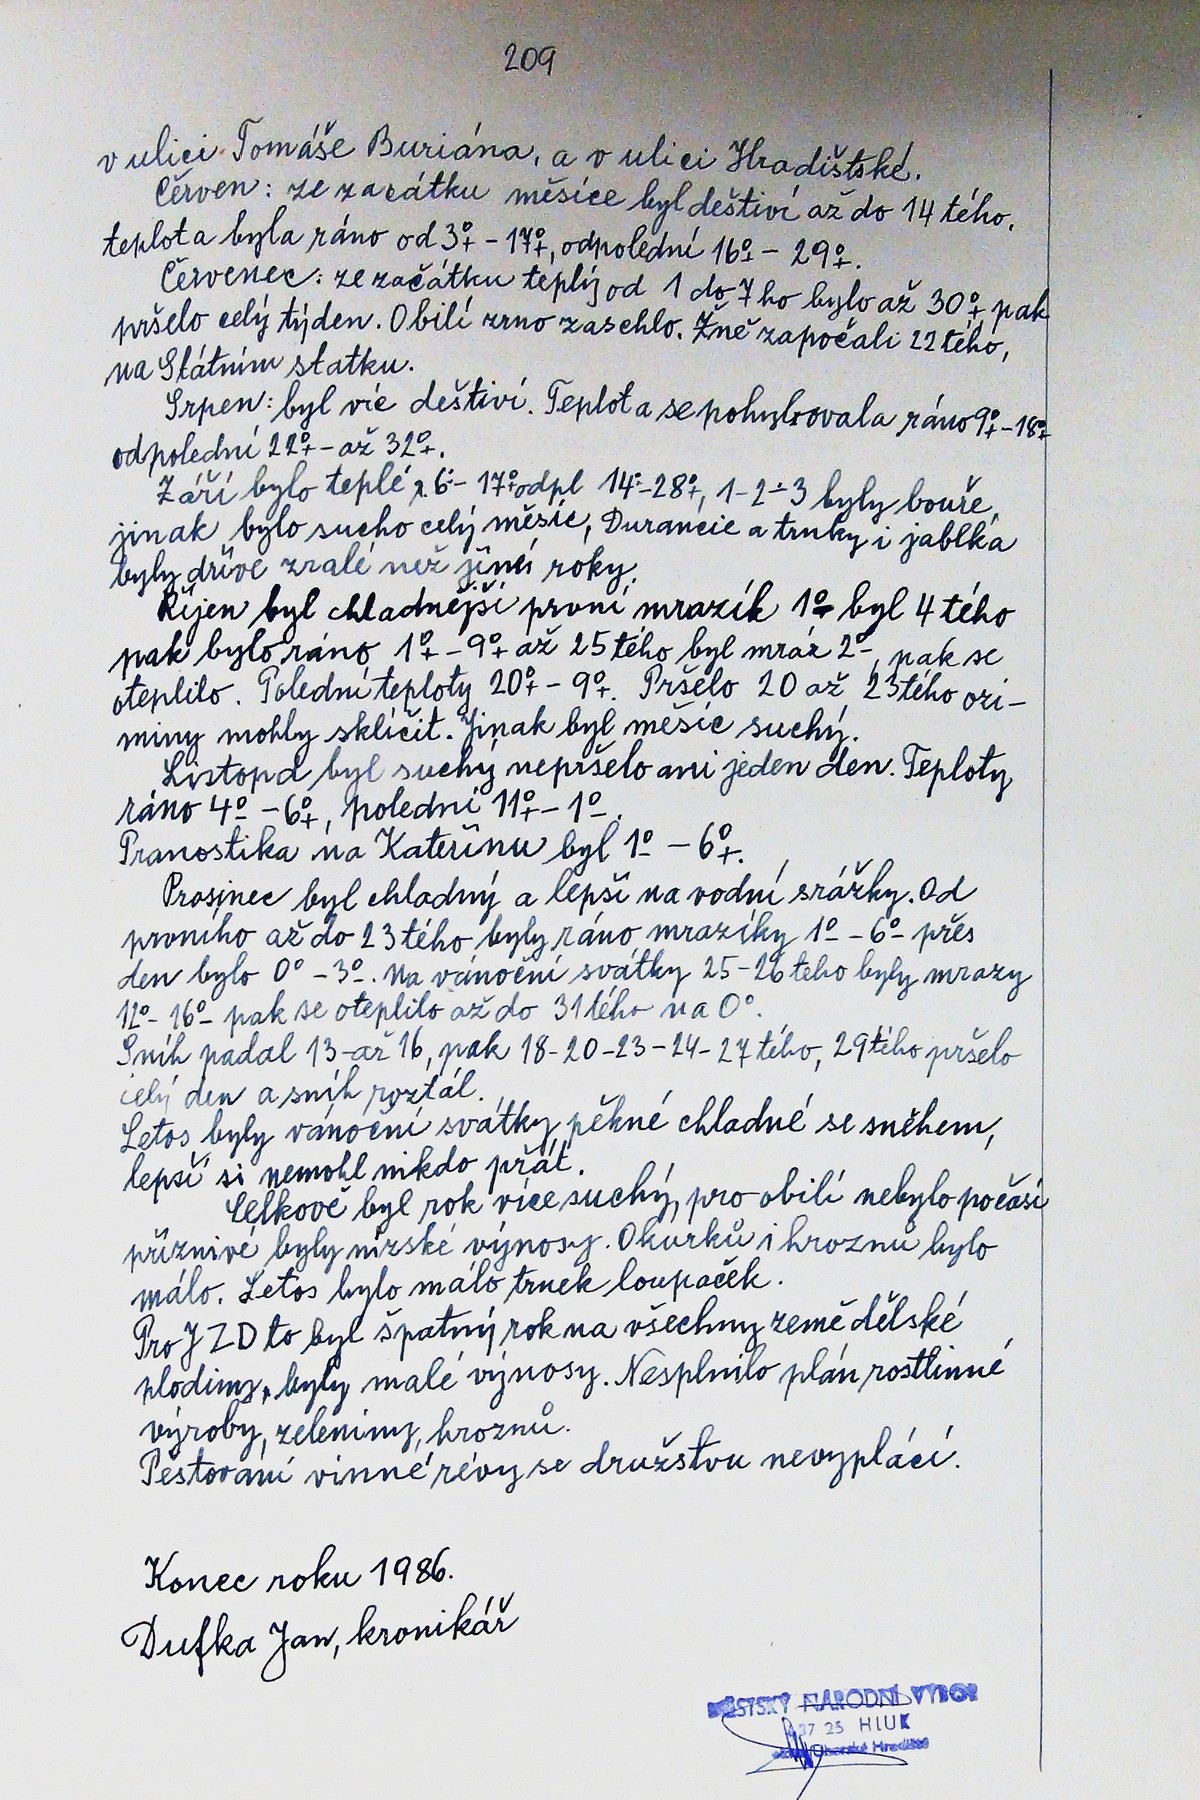 209
v ulici Tomáše Buriána, a v ulici Hradištské.
Červen: ze začátku měsíce byl deštiví až do 14 tého,
teplota byla ráno od 3°+ - 17°+, odpolední 16°+ - 29°+.
Červenec: ze začátku teplý od 1 do 7 ho bylo až 30°+ pak
pršelo celý týden. Obilí zrno zaschlo. Žně započali 22 tého,
na Státním statku.
Srpen: byl víc deštiví. Teplota se pohybovala ráno 9°+ - 18°+
odpolední 22°+ - až 32°+.
Září bylo teplé r. 6°- 17°+ odpl 14°- 28°+, 1-2-3 byly bouře,
jinak bylo sucho celý měsíc, Durancie a trnky i jablka
byly dříve zralé než jiné roky.
Říjen byl chladnější první mrazík 1°- byl 4 tého
pak bylo ráno 1°+ - 9°+ až 25 tého byl mráz 2°-, pak se
oteplilo. Polední teploty 20°+ - 9°+. Pršelo 20 až 23 tého ozi-
miny mohly sklíčit. Jinak byl měsíc suchý.
Listopad byl suchý nepršelo ani jeden den. Teploty
ráno 4°- - 6°+, polední 11°+ - 1°-.
Pranostika na Kateřinu byl 1°- - 6°+.
Prosinec byl chladný a lepší na vodní srážky. Od
prvního až do 23 tého byly ráno mrazíky 1°- - 6°- přes
den bylo 0° - 3°-. Na vánoční svátky 25-26 tého byly mrazy
12°- 16°- pak se oteplilo až do 31 tého na 0°.
Sníh padal 13-až 16, pak 18-20-23-24-27 tého, 29 tého pršelo
celý den a sníh roztál.
Letos byly vánoční svátky pěkné chladné se sněhem,
lepší si nemohl nikdo přát.
Celkově byl rok více suchý, pro obilí nebylo počasí
příznivé byly nízské výnosy. Okurků i hroznů bylo
málo. Letos bylo málo trnek loupaček.
Pro JZD to byl špatný rok na všechny zemědělské
plodiny, byly malé výnosy. Nesplnilo plán rostlinné
výroby, zeleniny, hroznů.
Pěstování vinné révy se družstvu nevyplácí.
Konec roku 1986.
Dufka Jan, kronikář
MĚSTSKÝ NÁRODNÍ VÝBOR
687 25 HLUK
okres Uherské Hradiště